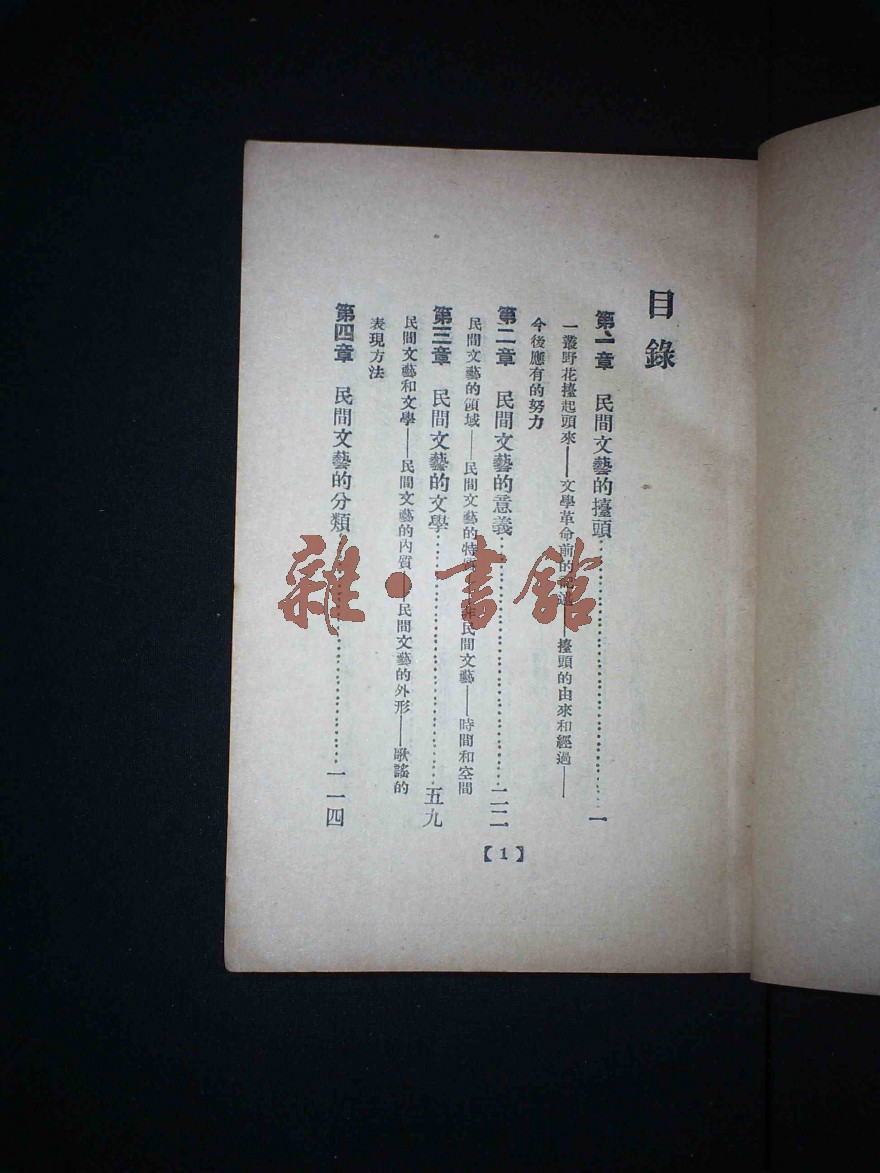 目錄
第一章　民間文藝的擡頭……………………一
一叢野花擡起頭來——文學革命前的　　——擡頭的由來和經過——
今後應有的努力
第二章　民間文藝的意義……………………二二
民間文藝的領域——民間文藝的特　　　民間文藝——時間和空間
第三章　民間文藝的文學……………………五九
民間文藝和文學——民間文藝的內質——民間文藝的外形——歌謠的
表現方法
第四章　民間文藝的分類……………………一一四
【1】
雜·書館